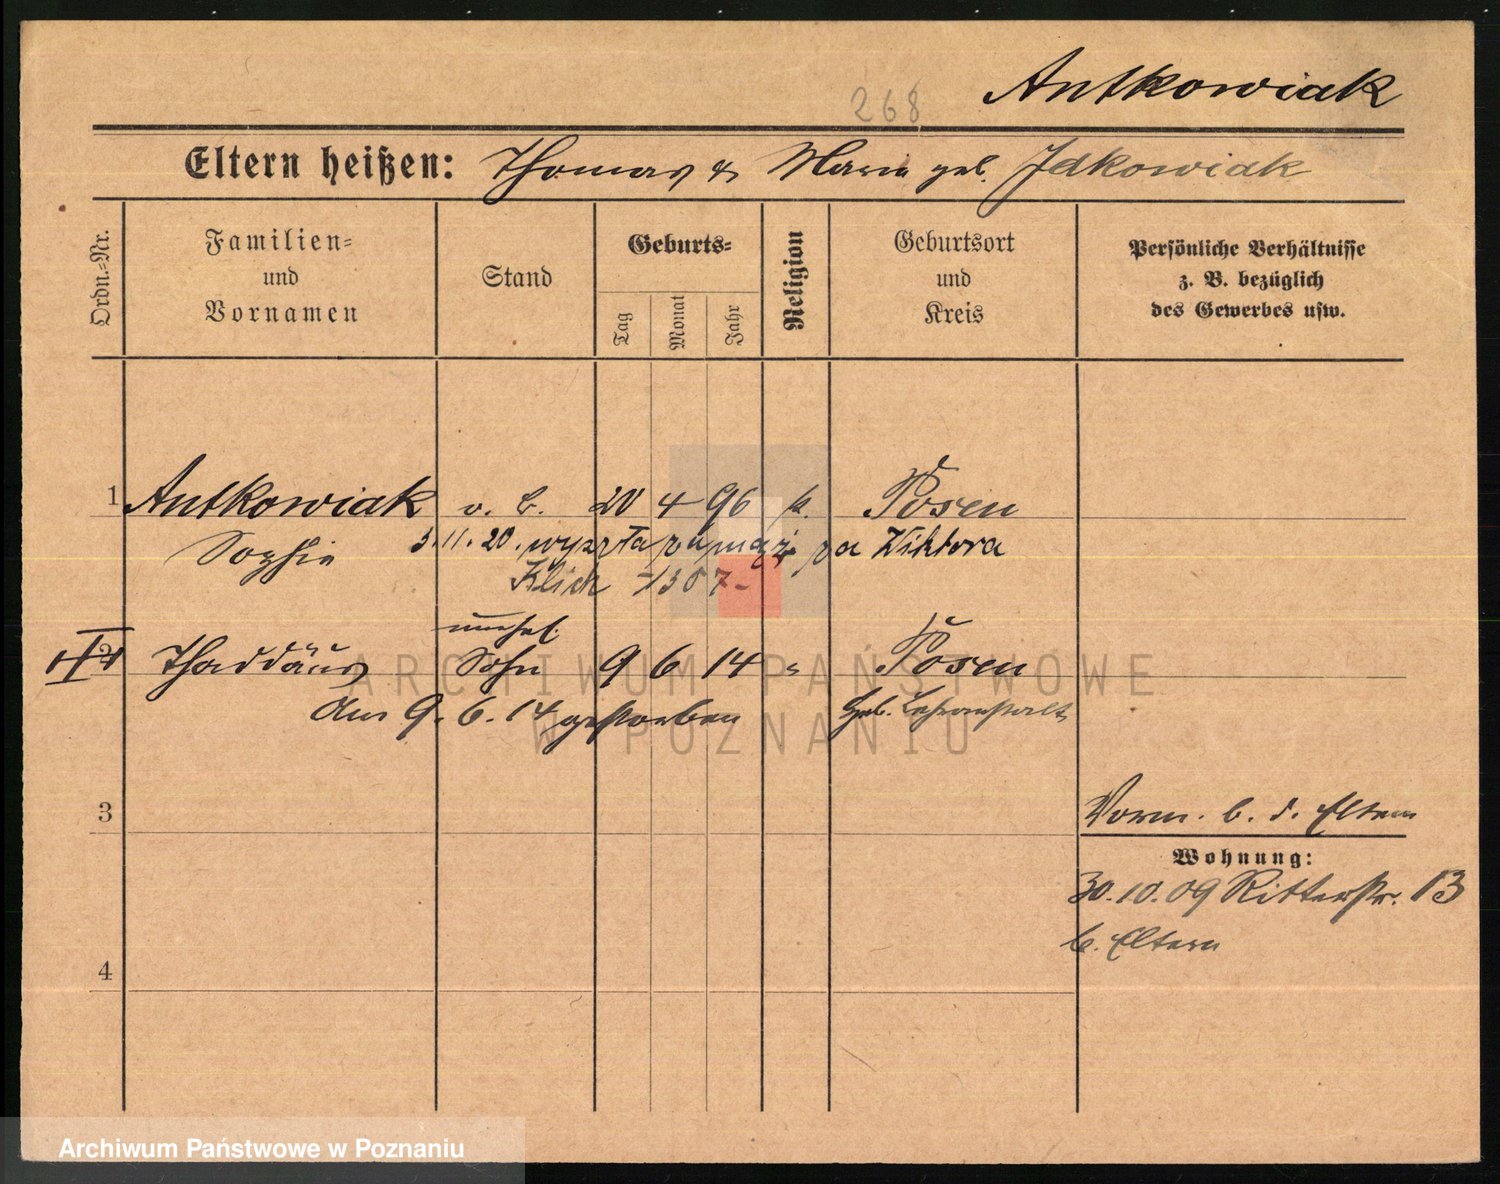 268 Antkowiak
Eltern heißen: Thomas & Marie geb. Jdkowiak
Ordn.=Nr.
Familien=
und
Vornamen
Stand
Geburts=
Tag
Monat
Jahr
Religion
Geburtsort
und
Kreis
Persönliche Verhältnisse
z. B. bezüglich
des Gewerbes usw.
1 Antkowiak o. B. 20 4 96 k. Posen
Sophie 5.11.20. wyszła zamąż za Wiktora
Klich -1307-
unehel.
2 Thaddäus Sohn 9 6 14 " Posen
Am 9. 6. 14 gestorben Heb. Lehranstalt
3
Vorm. b. d. Eltern
Wohnung:
30.10.09 Ritterstr. 13
b. Eltern
4
ARCHIWUM PAŃSTWOWE
W POZNANIU
Archiwum Państwowe w Poznaniu